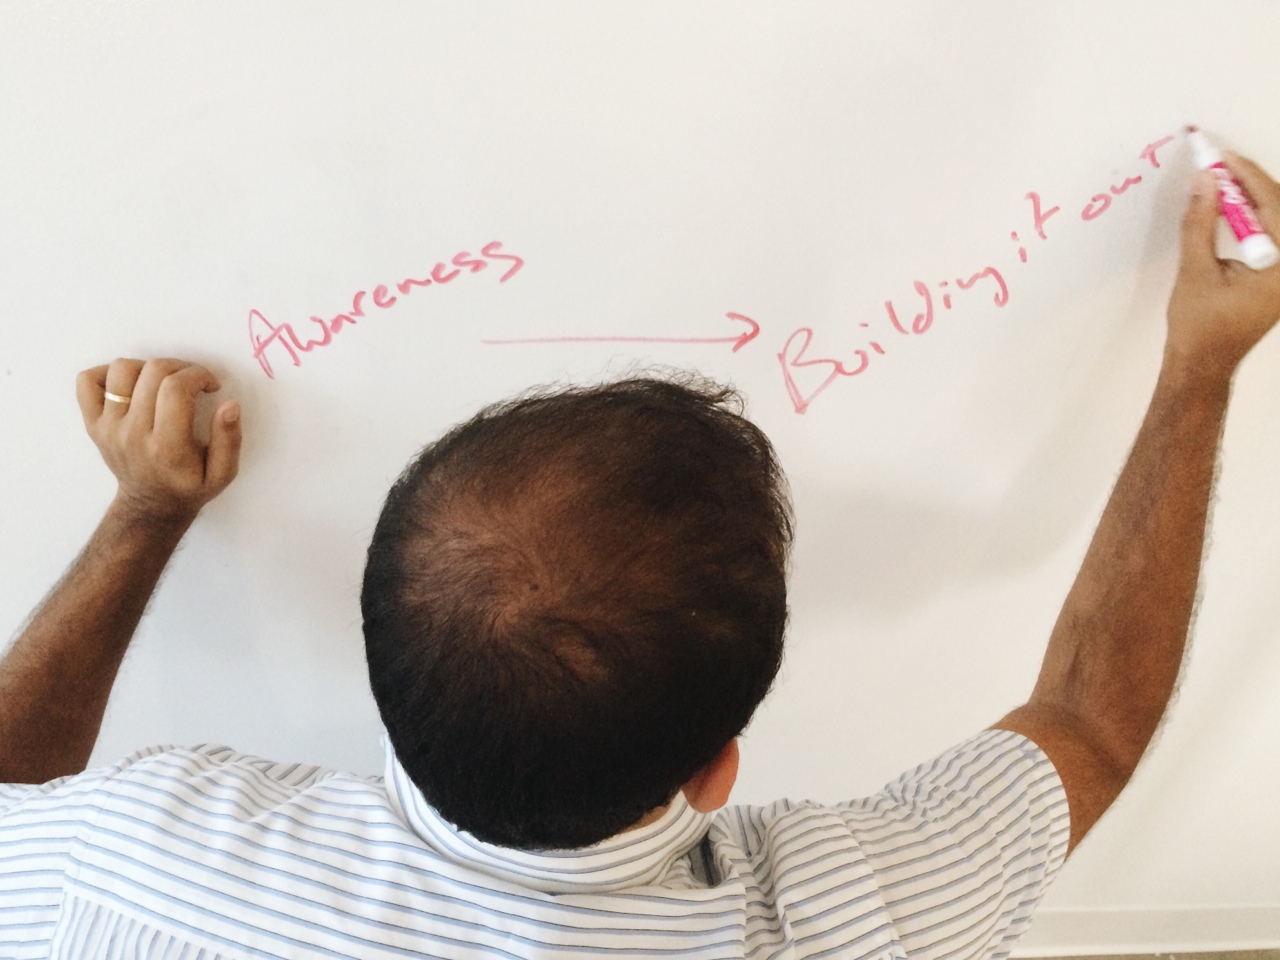 Awareness → Building it out